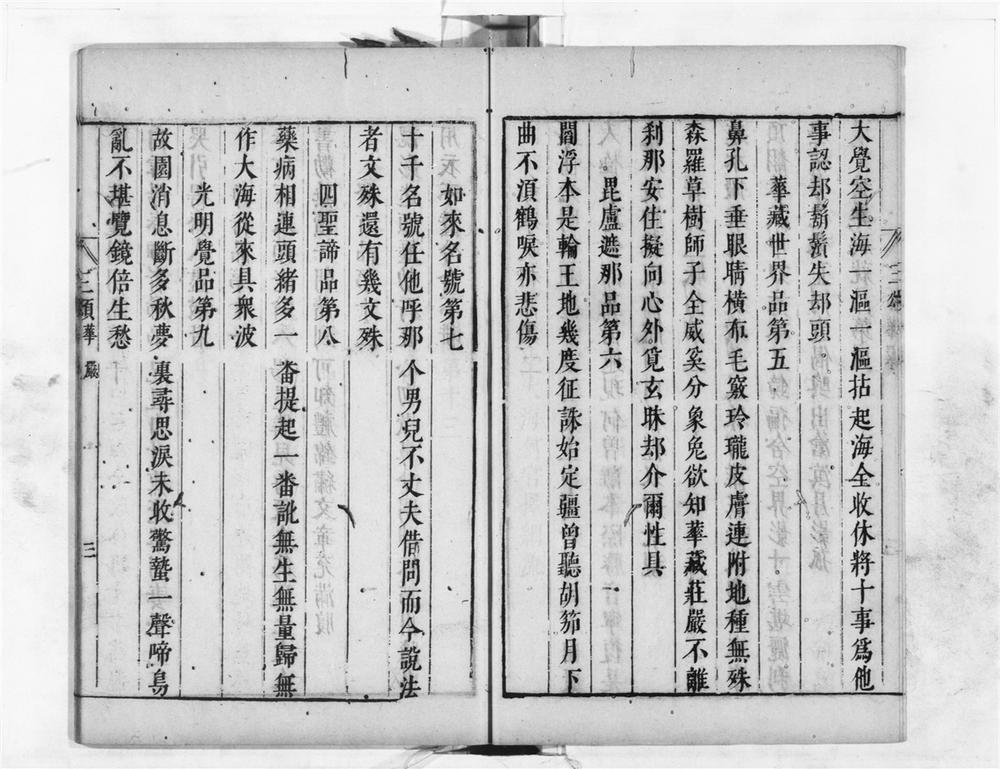 大覺空生海一漚一漚拈起海全收休將十事爲他
事認却鬍鬚失却頭
華藏世界品第五
鼻孔下垂眼睛橫布毛竅玲瓏皮膚連附地種無殊
森羅草樹師子全威奚分象兔欲知華藏莊嚴不離
刹那安住擬向心外覓玄昧却介爾性具
毘盧遮那品第六
閻浮本是輪王地幾度征誅始定疆曾聽胡笳月下
曲不須鶴唳亦悲傷
如來名號第七
十千名號任他呼那个男兒不丈夫借問而今說法
者文殊還有幾文殊
四聖諦品第八
藥病相連頭緒多一畨提起一畨訛無生無量歸無
作大海從來具衆波
光明覺品第九
故園消息斷多秋夢裏尋思淚未收驚蟄一聲啼鳥
亂不堪覽鏡倍生愁
三頌華嚴 三